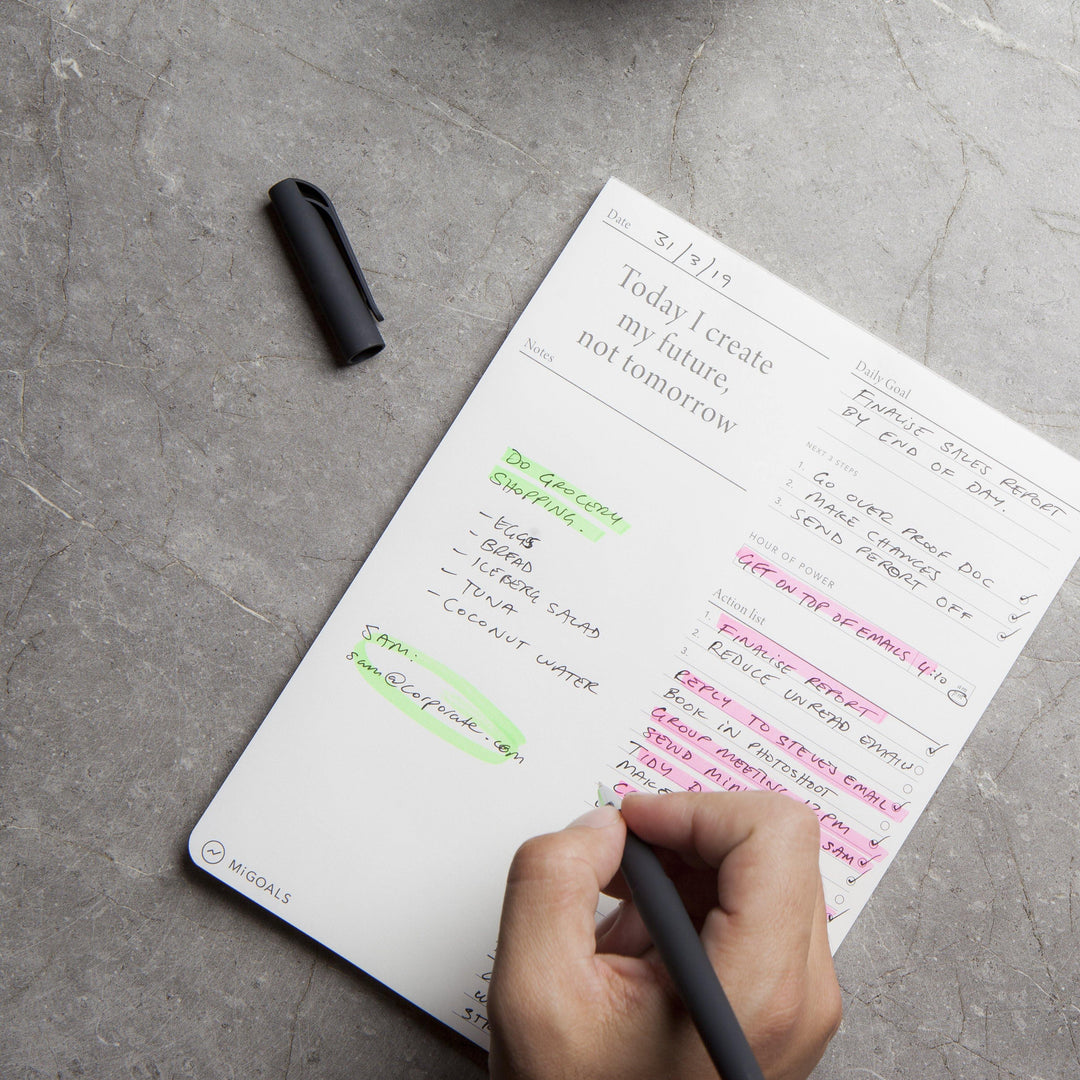 Date 31/3/19
Today I create
my future,
not tomorrow
Notes
DO GROCERY
SHOPPING.
- EGGS
- BREAD
- ICEBERG SALAD
- TUNA
- COCONUT WATER
SAM:
sam@corporate.com
MiGOALS
Daily Goal
FINALISE SALES REPORT
BY END OF DAY.
NEXT 3 STEPS
1. GO OVER PROOF DOC
2. MAKE CHANGES
3. SEND REPORT OFF
HOUR OF POWER
GET ON TOP OF EMAILS 4:10
Action list
1. FINALISE REPORT
2. REDUCE UNREAD EMAILS
3. REPLY TO STEVE'S EMAIL
BOOK IN PHOTOSHOOT
GROUP MEETING 12PM
SEND MIN SAM
TIDY D
MAKE